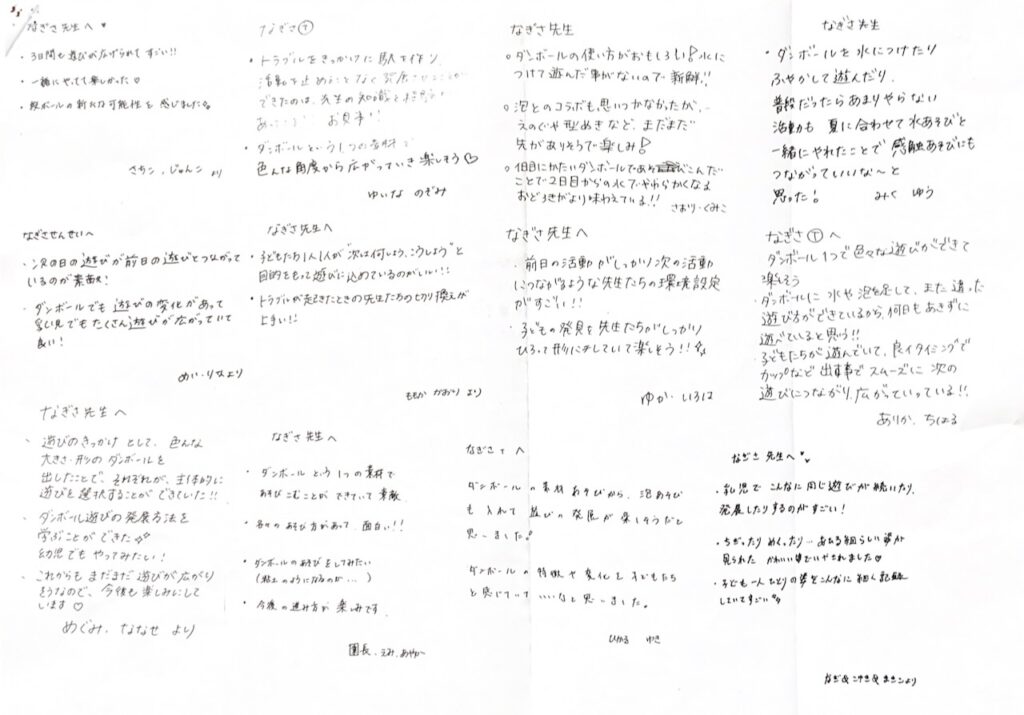 なぎさ先生へ♥
・3日間も遊びが広げられてすごい!!
・一緒にやってて楽しかった♡
・段ボールの新たな可能性を感じました。
さちこ、じゅんこ より
なぎさⓉ
・トラブルをきっかけに
活動を止めることなく発展させることが
できたのは、先生の知識と
お見事!!
・ダンボールという1つの素材で
色んな角度から広がっていき楽しそう♡
ゆいな のぞみ
なぎさ先生
・ダンボールの使い方がおもしろい!水に
つけて遊んだ事がないので新鮮!!
・泡とのコラボも思いつかなかったが、
えのぐや型ぬきなど、まだまだ
先がありそうで楽しみ!
・1日目にかたいダンボールであそびこんだ
ことで2日目からの水でやわらかくなる
おどろきがより味わえている!!
さおり・くみこ
なぎさ先生
・ダンボールを水につけたり
ふやかして遊んだり、
普段だったらあまりやらない
活動も夏に合わせて水あそびと
一緒にやれたことで感触あそびにも
つながっていいな~と
思った!
みく ゆう
なぎさせんせいへ
・次の日の遊びが前日の遊びとつながって
いるのが素敵!
・ダンボールでも遊びの変化があって
乳児でもたくさん遊びが広がっていて
良い!
めい・りひより
なぎさ先生へ
・子どもたち1人1人が"次は何しよう、こうしよう"と
目的をもって遊びに込めているのがいい!!
・トラブルが起きたときの先生たちの切り換えが
上手い!!
ももか かおり より
なぎさ先生へ
・前日の活動がしっかり次の活動
につながるような先生たちの環境設定
がすごい!!
・子どもの発見を先生たちがしっかり
ひろって形にしていて楽しそう!!
ゆか・いろは
なぎさⓉへ
・ダンボール1つで色々な遊びができて
楽しそう
・ダンボールに水や泡を足して、また違った
遊び方ができているから、何日もあきずに
遊べていると思う!!
・子どもたちが遊んでいて、良イタイミングで
カップなど出す事でスムーズに次の
遊びにつながり、広がっていっている!!
ありか、ちはる
なぎさ先生へ
・遊びのきっかけとして、色んな
大きさ・形のダンボールを
出したことで、それぞれが、主体的に
遊びを選択することができていた!!
・ダンボール遊びの発展方法を
学ぶことができた
幼児でもやってみたい!
・これからもまだまだ遊びが広がり
そうなので、今後も楽しみにして
います♡
めぐみ、ななせ より
なぎさ先生へ
・ダンボールという1つの素材で
あそびこむことができていて素敵
・各々のあそび方があって、面白い!!
・ダンボールのあそびをしてみたい
(粘土のようになるのが...)
・今後の進み方が楽しみです。
園長、えみ、あやか
なぎさTへ
ダンボールの素材あそびから、泡あそび
も入れて遊びの発展が楽しそうだと
思いました。
ダンボールの特徴や変化を子どもたち
と感じていていいなと思いました。
ひかる ゆき
なぎさ先生へ♥
・乳児でこんなに同じ遊びが続いたり、
発展したりするのがすごい!
・ちぎったりめくったり…ある子らしい姿が
見られたかわいい姿でいやされました♡
・子ども一人ひとりの姿をこんなに細く記録
していてすごい
より